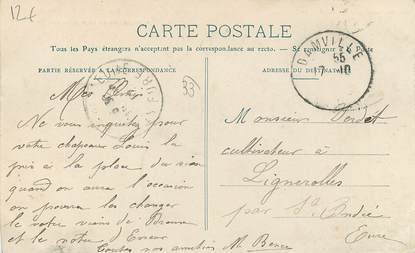 12€
CARTE POSTALE
Tous les Pays étrangers n'acceptent pas la correspondance au recto. — Se renseigner à la Poste
PARTIE RÉSERVÉE A LA CORRESPONDANCE
ADRESSE DU DESTINATAIRE
DAMVILLE
33
Mes
Ne vous inquiétez pour
votre chapeau Louis l'a
pris à la place du sien
quand on aura l'occasion
on pourra les changer
le votre viens de
et le notre d'Evreux
Toutes nos amitiés
Monsieur Verdet
cultivateur à
Lignerolles
par St André
Eure